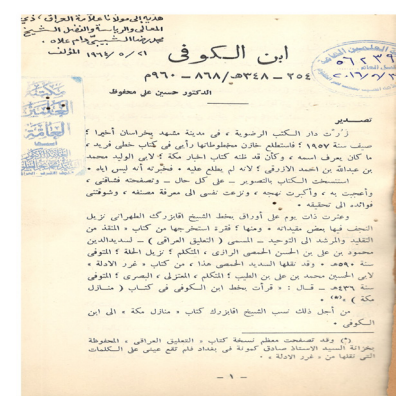 هدية إلى مولانا علامة العراق، ذي
المعالي والرياسة والفضل الشيخ
محمد رضا الشبيبي دام علاه .
١٩٦٤/٥/٢١ المؤلف
ابن الكوفى
٢٥٤ – ٣٤٨هـ/٨٦٨ – ٩٦٠م
الدكتور حسين علي محفوظ
٥٦٢٩٣
تصدير
زرت دار الكتب الرضوية ، فى مدينة مشهد بخراسان أخيرا ؛
صيف سنة ١٩٥٧ ؛ فاستطلع خازن مخطوطاتها رأيى فى كتاب خطى فريد ،
ما كان يعرف اسمه ، وكان قد ظنه كتاب اخبار مكة ؛ لابى الوليد محمد
بن عبدالله بن احمد الازرقى ؛ لانه لم يطلع عليه ٠ فخبرته أنه ليس اياه ٠
استنسخت الكتاب بالتصوير – على كل حال – وتصفحته فشاقنى ،
وأعجبت به ، وأكبرت نهجه ، ونزعت نفسى الى معرفة مصنفه ، وشوقتنى
فوائده الى تحقيقه ٠
وعثرت ذات يوم على أوراق بخط الشيخ اقابزرك الطهرانى نزيل
النجف فيها بعض مقيداته ٠ ومنها ؛ فقرة استخرجها من كتاب « المنقذ من
التقليد والمرشد الى التوحيد – المسمى ( التعليق العراقى ) – لسديدالدين
محمود بن على بن الحسن الحمصى الرازى ، المتكلم ؛ نزيل الحلة ؛ المتوفى
سنة ٥٩٠هـ ٠ وقد نقلها السديد الحمصى هذا ، من كتاب « غرر الادلة »
لابى الحسين محمد بن على بن الطيب ؛ المتكلم ، المعتزلى ، البصرى ؛ المتوفى
سنة ٤٣٦هـ – قال : « قرأت بخط ابن الكوفى فى كتاب ( منازل
مكة ) »(*) ٠
من أجل ذلك نسب الشيخ اقابزرك كتاب « منازل مكة » الى ابن
الكوفى ٠
(*) وقد تصفحت معظم نسخة كتاب « التعليق العراقى » المحفوظة
بخزانة السيد الاستاذ صادق كمونة فى بغداد فلم تقع عينى على الكلمات
التى نقلها من « غرر الادلة » ٠
– ١ –